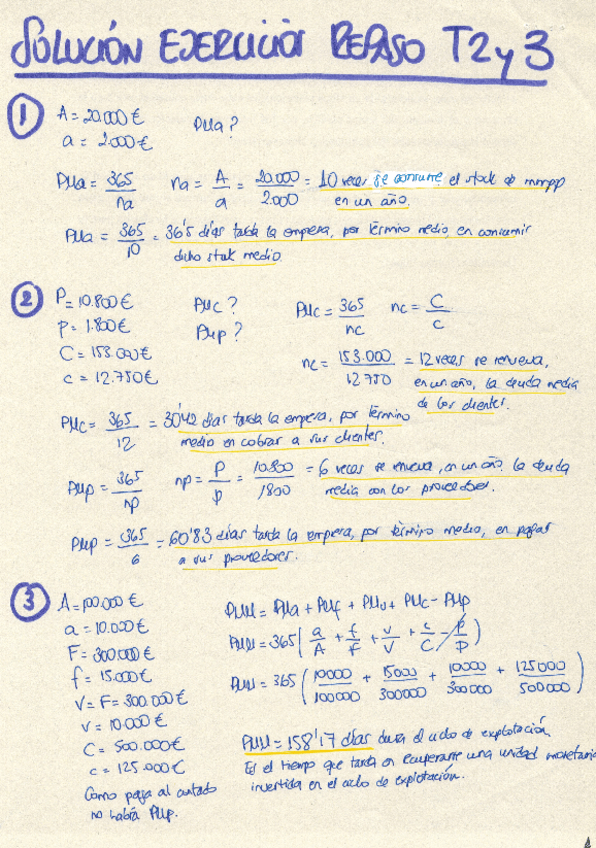 SOLUCIÓN EJERCICIOS REPASO T2 y 3
1
A = 20.000 €
a = 2.000 €
PMa?
PMa = 365/na
na = A/a = 20.000/2.000 = 10 veces se consume el stock de mmpp
en un año.
PMa = 365/10 = 36'5 días tarda la empresa, por término medio, en consumir
dicho stock medio
2
P = 10.800 €
p = 1.800 €
C = 153.000 €
c = 12.750 €
PMc?
PMp?
PMc = 365/nc
nc = C/c
nc = 153.000/12.750 = 12 veces se renueva,
en un año, la deuda media
de los clientes.
PMc = 365/12 = 30'42 días tarda la empresa, por término
medio en cobrar a sus clientes.
PMp = 365/np
np = P/p = 10.800/1800 = 6 veces se renueva, en un año, la deuda
media con los proveedores.
PMp = 365/6 = 60'83 días tarda la empresa, por término medio, en pagar
a sus proveedores.
3
A = 100.000 €
a = 10.000 €
F = 300.000 €
f = 15.000 €
V = F = 300.000 €
v = 10.000 €
C = 500.000 €
c = 125.000 €
Como paga al contado
no habrá PMp.
PMM = PMa + PMf + PMv + PMc - PMp
PMM = 365 (a/A + f/F + v/V + c/C - p/P)
PMM = 365 (10000/100000 + 15000/300000 + 10000/300000 + 125000/500000)
PMM = 158'17 días dura el ciclo de explotación
Es el tiempo que tarda en recuperarse una unidad monetaria
invertida en el ciclo de explotación.